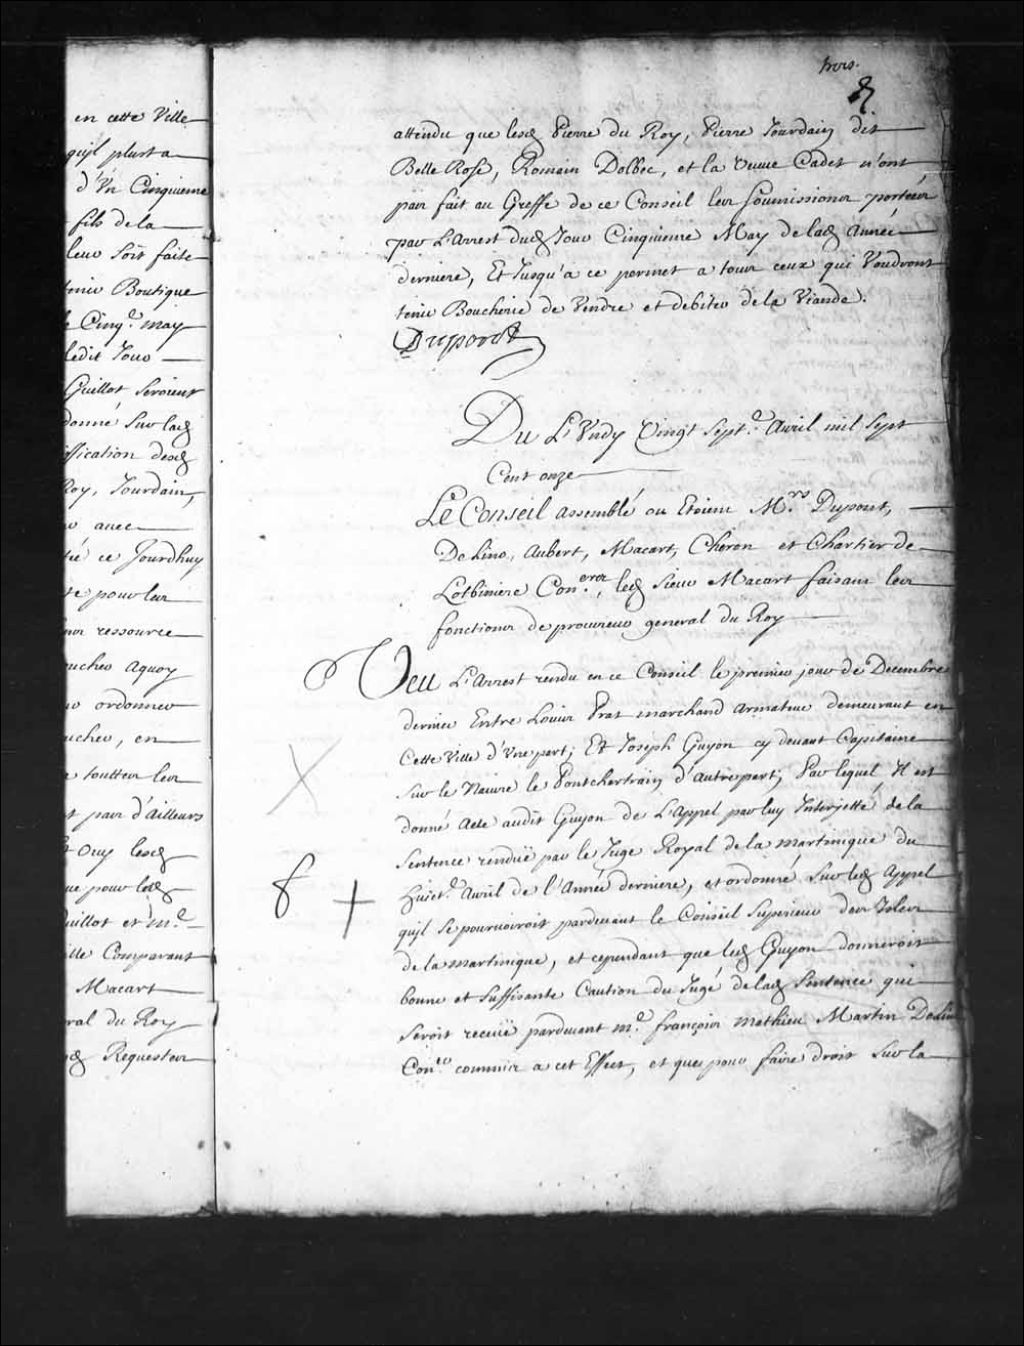 en cette Ville
qu'jl plust a
d'Vn Cinquieme
fils de la
leur Soit faite
tenir Boutique
Cinq.e may
ledit Jour
Guillot Seroient
donné Sur lad
iffication desd
Roy, Jourdain,
avec
ce Jourdhuy
pour leur
ressource
Aquoy
ordonner
en
toutteu leu
par d'Ailleurs
Ouy lesd
pour led
Guillot et m.e
Comparant
Macart
ral du Roy
Requesteu
trois.
attendu que lesd Pierre du Roy, Pierre Jourdain dit
Belle Rose, Romain Dolbec, et la veuve Cadet n'ont
pas fait au Greffe de ce Conseil leur Soumissionu porteéu
par L'Arrest dud Jour Cinquieme May de lad Année
derniere, Et Jusqu'a ce permet a touu ceux qui Voudront
tenir Boucherie de Vendre et debiter de la Viande.
Dupont
Du LVndy Vingt Sept.e Avril mil Sept
Cent onze
Le Conseil assemblé ou Etoient M.rs Dupont,
De Lino, Aubert, Macart, Cheron et Chartier de
Lotbiniere Con.ers, led Sieur Macart faisant leu
fonctionu de procureur general du Roy
Veu L'Arrest rendu en ce Conseil le premier jour de Decembre
dernier Entre Louiu Prat marchand armateur demeurant en
Cette Ville d'Vne part; Et Joseph Guyon cy devant Capitaine
Sur le Navire le Pontchertrain d'autre part; Par lequel Il est
donné Acte audit Guyon de L'Appel par luy Interjetté de la
Sentence rendüe par le Juge Royal de la martinique du
huict.e Avril de l'Année derniere, et ordonné Sur led Appel
qu'jl Se pourvoiroit pardevant le Conseil Superieur deu Jsleu
de la martinique, et cependant que led Guyon donneroit
bonne et Suffisante Caution du Jugé de lad Sentence qui
Seroit receüe pardevant m.e françoiu mathieu Martin Delino
Con.er commiu a cet Effect, et que pour faire droit Sur la